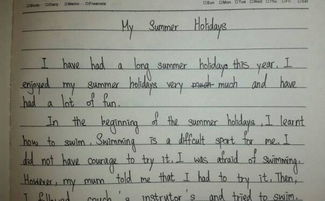 My Summer Holidays
I have had a long summer holidays this year. I
enjoyed my summer holidays very much and have
had a lot of fun.
In the beginning of the summer holidays, I learnt
how to swim. Swimming is a difficult sport for me. I
did not have courage to try it. I was afraid of swimming.
However, my mum told me that I had to try it. Then,
I followed coach's instructor's and tried to swim.